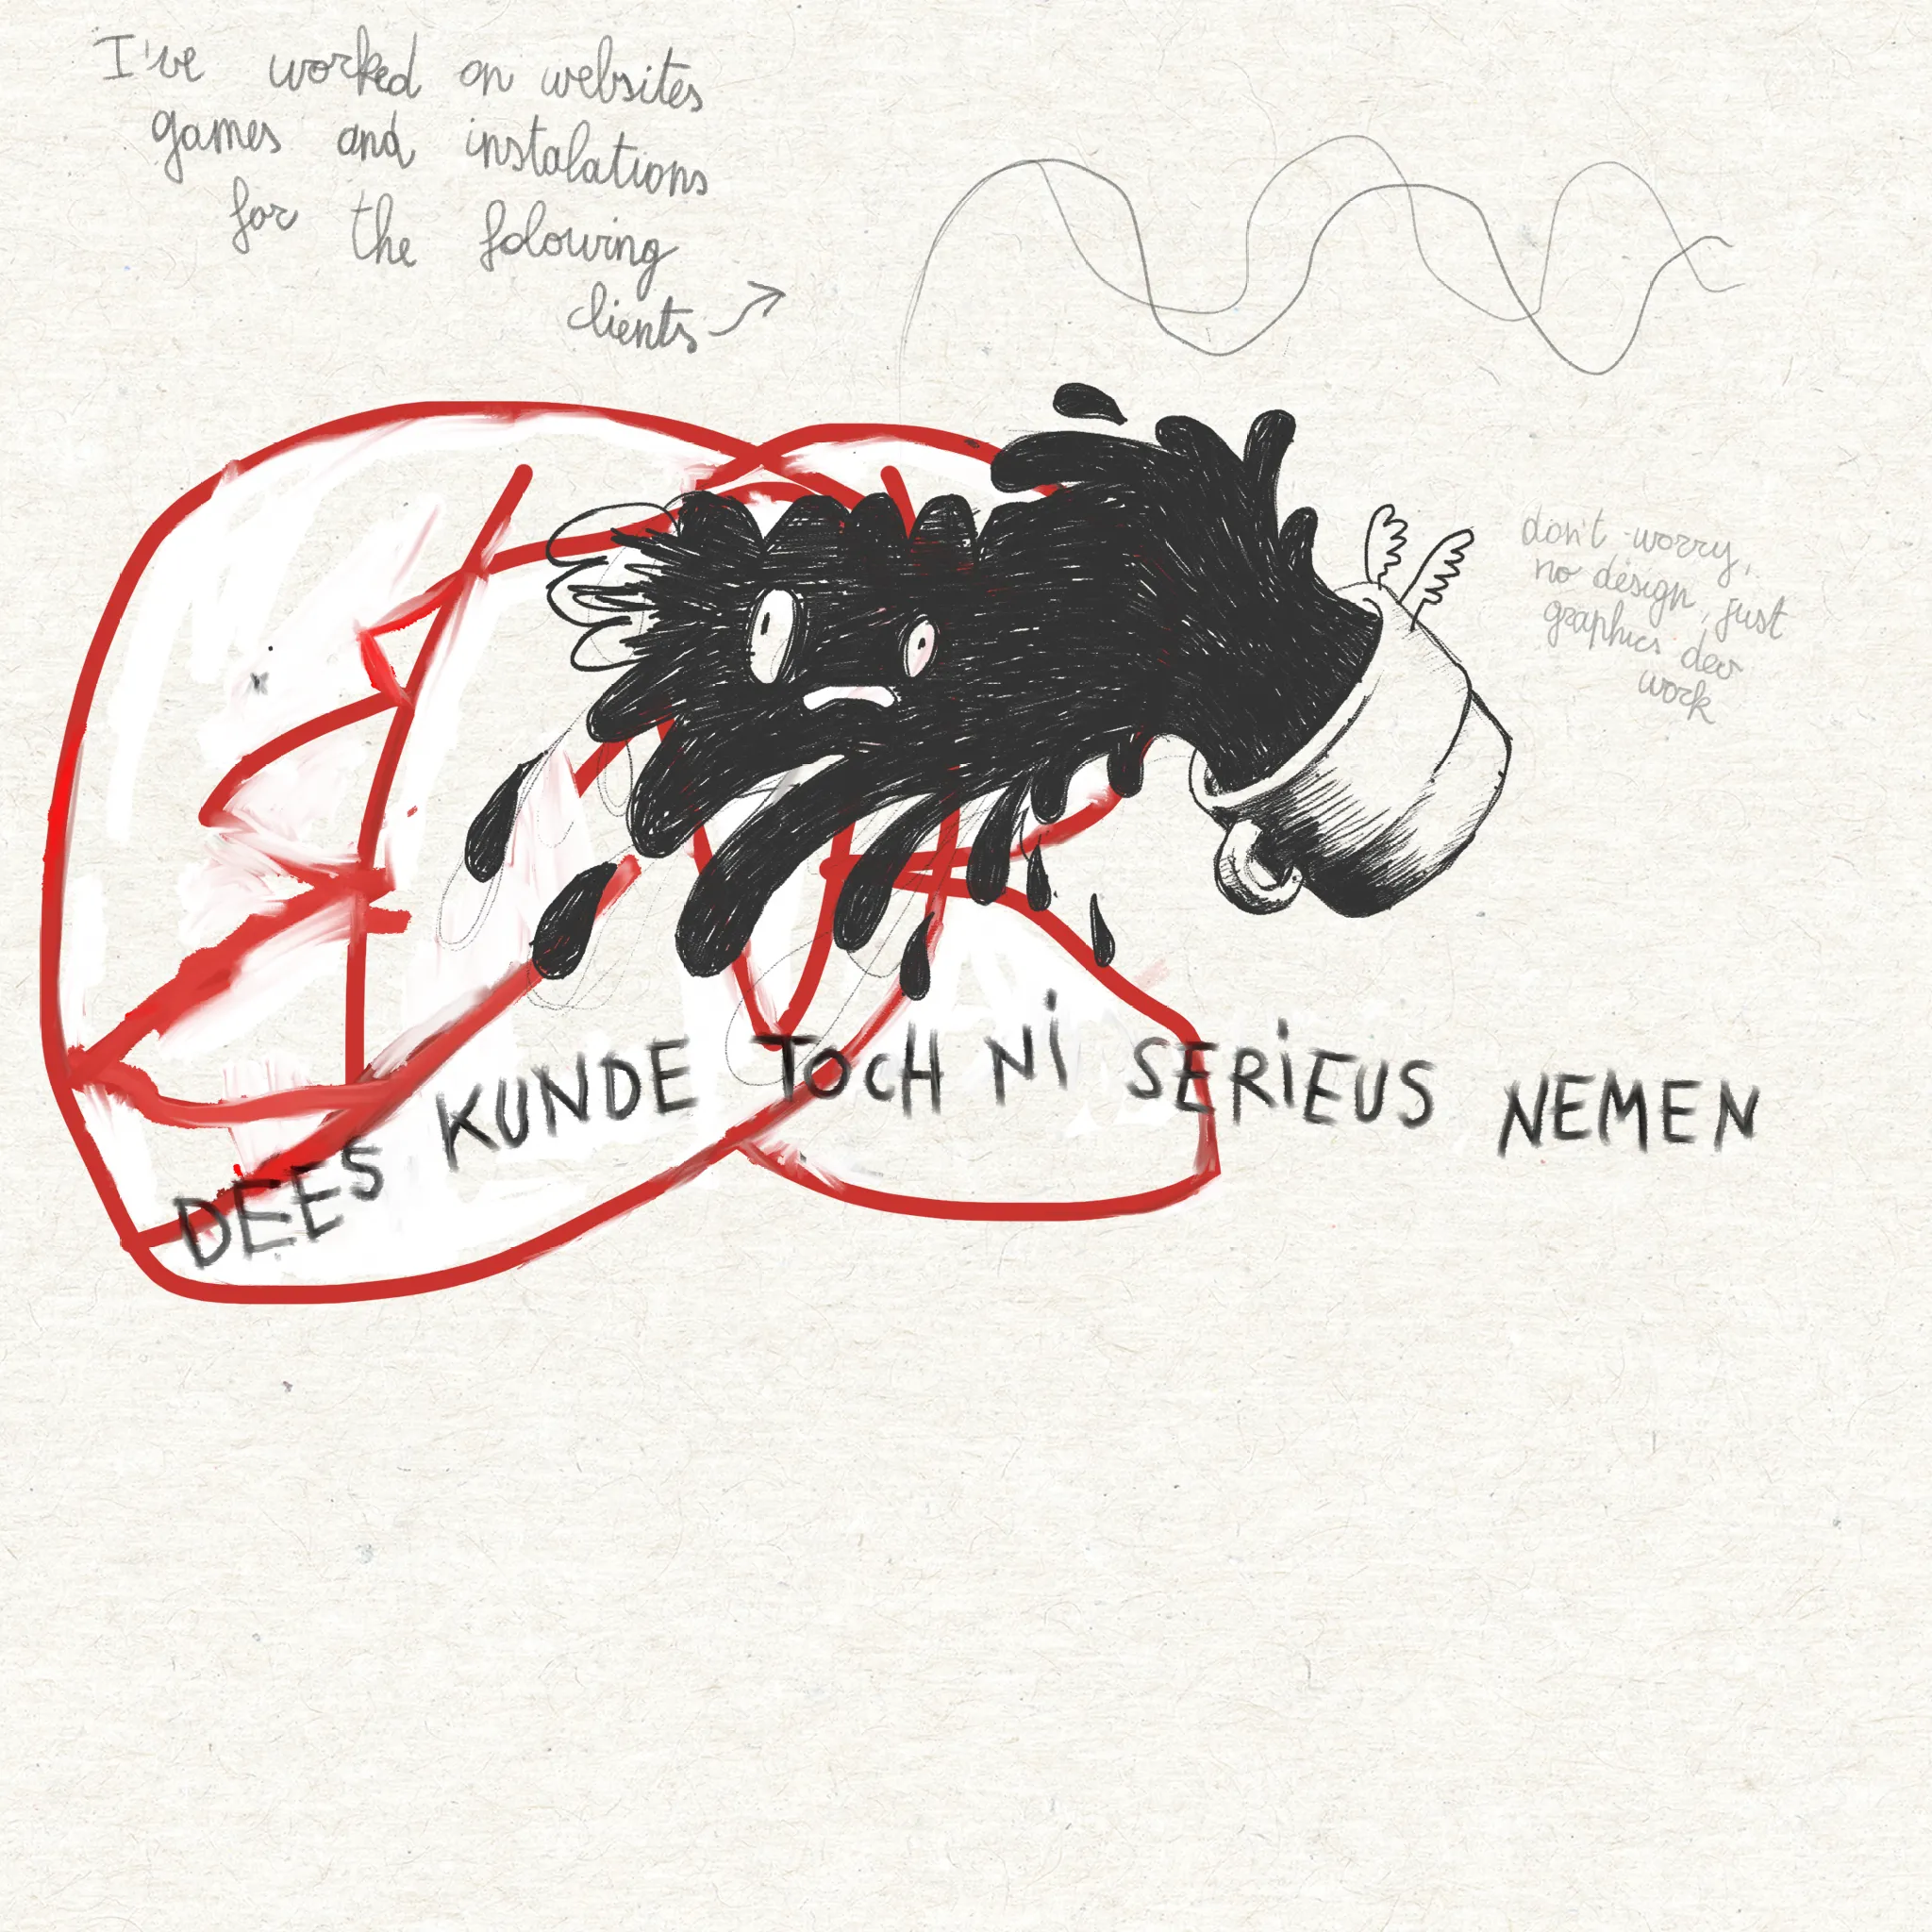 I've worked on websites
games and instalations
for the folowing
clients
don't worry,
no design, just
graphics dev
work
DEES KUNDE TOCH Ni SERiEUS NEMEN